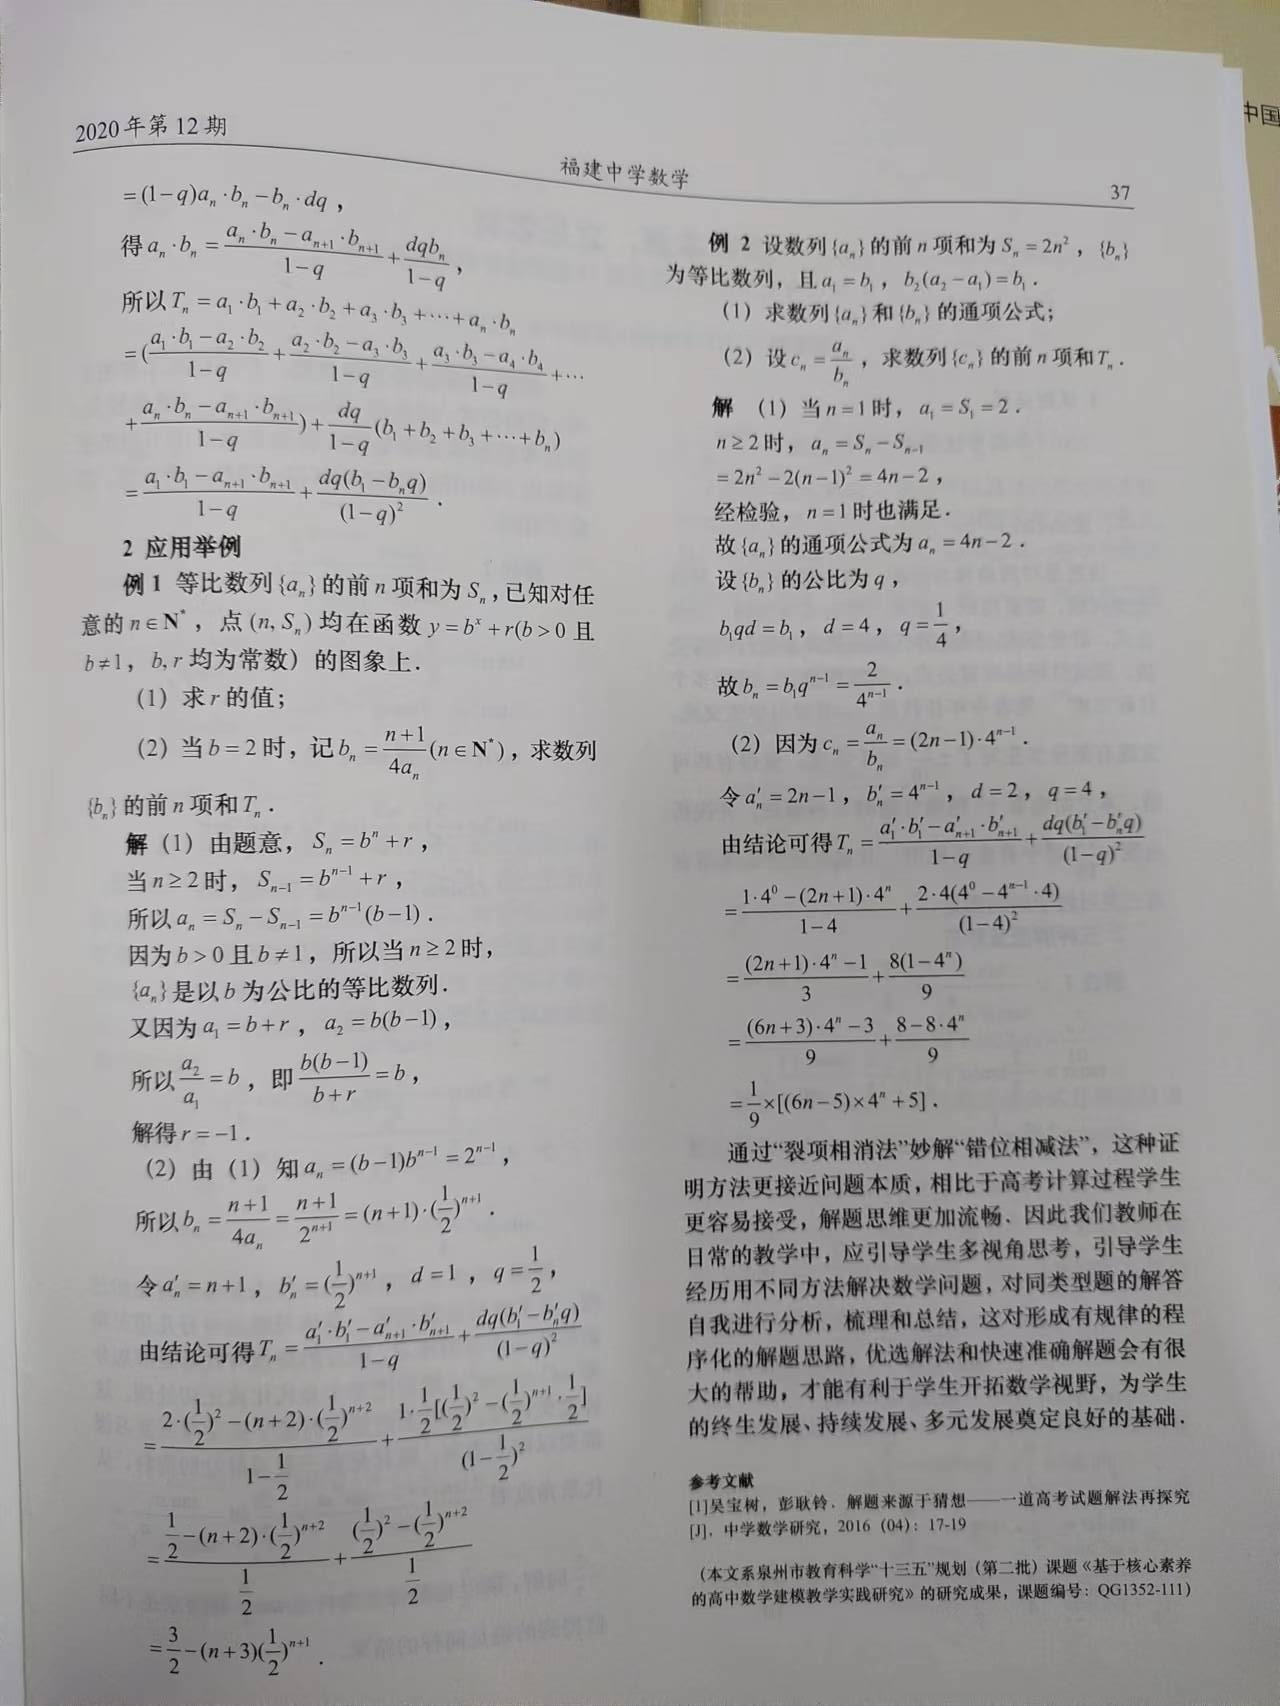 2020年第12期
福建中学数学
37
=(1-q)aₙ·bₙ-bₙ·dq，
得aₙ·bₙ=(aₙ·bₙ-aₙ₊₁·bₙ₊₁)/(1-q)+dqbₙ/(1-q)，
所以Tₙ=a₁·b₁+a₂·b₂+a₃·b₃+⋯+aₙ·bₙ
=((a₁·b₁-a₂·b₂)/(1-q)+(a₂·b₂-a₃·b₃)/(1-q)+(a₃·b₃-a₄·b₄)/(1-q)+⋯
+(aₙ·bₙ-aₙ₊₁·bₙ₊₁)/(1-q))+dq/(1-q)(b₁+b₂+b₃+⋯+bₙ)
=(a₁·b₁-aₙ₊₁·bₙ₊₁)/(1-q)+dq(b₁-bₙq)/(1-q)²．
2 应用举例
例1 等比数列{aₙ}的前n项和为Sₙ，已知对任
意的n∈N*，点(n, Sₙ)均在函数y=bˣ+r(b>0且
b≠1，b, r均为常数）的图象上．
（1）求r的值；
（2）当b=2时，记bₙ=(n+1)/(4aₙ)(n∈N*)，求数列
{bₙ}的前n项和Tₙ．
解（1）由题意，Sₙ=bⁿ+r，
当n≥2时，Sₙ₋₁=bⁿ⁻¹+r，
所以aₙ=Sₙ-Sₙ₋₁=bⁿ⁻¹(b-1)．
因为b>0且b≠1，所以当n≥2时，
{aₙ}是以b为公比的等比数列．
又因为a₁=b+r，a₂=b(b-1)，
所以a₂/a₁=b，即b(b-1)/(b+r)=b，
解得r=-1．
（2）由（1）知aₙ=(b-1)bⁿ⁻¹=2ⁿ⁻¹，
所以bₙ=(n+1)/(4aₙ)=(n+1)/2ⁿ⁺¹=(n+1)·(1/2)ⁿ⁺¹．
令a′ₙ=n+1，b′ₙ=(1/2)ⁿ⁺¹，d=1，q=1/2，
由结论可得Tₙ=(a′₁·b′₁-a′ₙ₊₁·b′ₙ₊₁)/(1-q)+dq(b′₁-b′ₙq)/(1-q)²
=(2·(1/2)²-(n+2)·(1/2)ⁿ⁺²)/(1-1/2)+(1·1/2[(1/2)²-(1/2)ⁿ⁺¹·1/2])/(1-1/2)²
=(1/2-(n+2)·(1/2)ⁿ⁺²)/(1/2)+((1/2)²-(1/2)ⁿ⁺²)/(1/2)
=3/2-(n+3)(1/2)ⁿ⁺¹．
例 2 设数列{aₙ}的前n项和为Sₙ=2n²，{bₙ}
为等比数列，且a₁=b₁，b₂(a₂-a₁)=b₁．
（1）求数列{aₙ}和{bₙ}的通项公式；
（2）设cₙ=aₙ/bₙ，求数列{cₙ}的前n项和Tₙ．
解 （1）当n=1时，a₁=S₁=2．
n≥2时，aₙ=Sₙ-Sₙ₋₁
=2n²-2(n-1)²=4n-2，
经检验，n=1时也满足．
故{aₙ}的通项公式为aₙ=4n-2．
设{bₙ}的公比为q，
b₁qd=b₁，d=4，q=1/4，
故bₙ=b₁qⁿ⁻¹=2/4ⁿ⁻¹．
（2）因为cₙ=aₙ/bₙ=(2n-1)·4ⁿ⁻¹．
令a′ₙ=2n-1，b′ₙ=4ⁿ⁻¹，d=2，q=4，
由结论可得Tₙ=(a′₁·b′₁-a′ₙ₊₁·b′ₙ₊₁)/(1-q)+dq(b′₁-b′ₙq)/(1-q)²
=(1·4⁰-(2n+1)·4ⁿ)/(1-4)+2·4(4⁰-4ⁿ⁻¹·4)/(1-4)²
=((2n+1)·4ⁿ-1)/3+8(1-4ⁿ)/9
=((6n+3)·4ⁿ-3)/9+(8-8·4ⁿ)/9
=1/9×[(6n-5)×4ⁿ+5]．
通过“裂项相消法”妙解“错位相减法”，这种证
明方法更接近问题本质，相比于高考计算过程学生
更容易接受，解题思维更加流畤．因此我们教师在
日常的教学中，应引导学生多视角思考，引导学生
经历用不同方法解决数学问题，对同类型题的解答
自我进行分析，梳理和总结，这对形成有规律的程
序化的解题思路，优选解法和快速准确解题会有很
大的帮助，才能有利于学生开拓数学视野，为学生
的终生发展、持续发展、多元发展奠定良好的基础．
参考文献
[1]吴宝树，彭耿铃．解题来源于猜想——一道高考试题解法再探究
[J]．中学数学研究，2016（04）：17-19
（本文系泉州市教育科学“十三五”规划（第二批）课题《基于核心素养
的高中数学建模教学实践研究》的研究成果，课题编号：QG1352-111）
中国